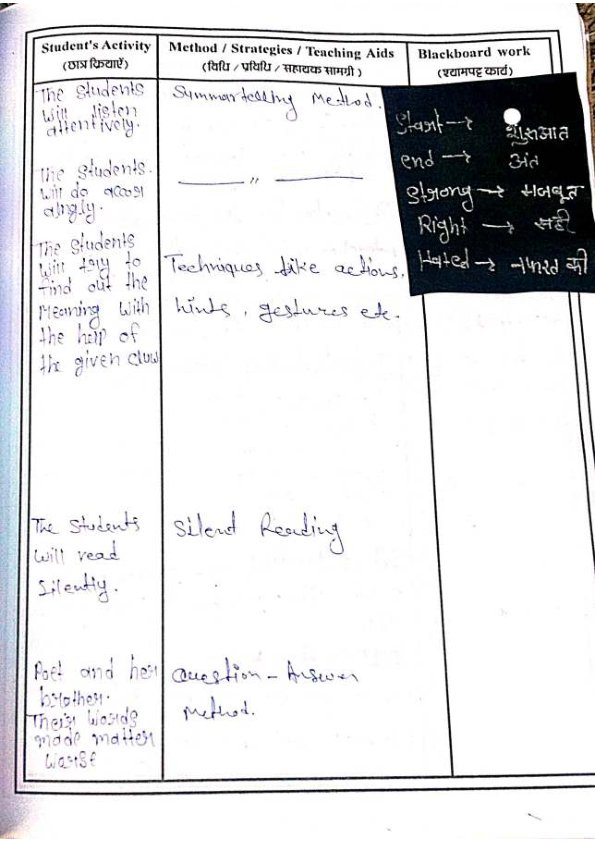 Student's Activity
(छात्र क्रियाएँ)
Method / Strategies / Teaching Aids
(विधि / प्रविधि / सहायक सामग्री)
Blackboard work
(श्यामपट्ट कार्य)
The Students
will listen
attentively.
Summartelling Method.
Start → शुरुआत
end → अंत
Strong → मजबूत
Right → सही
Hated → नफरत की
The Students.
will do accor
dingly.
——— " ———
The Students
will try to
find out the
Meaning with
the help of
the given cluw
Techniques like actions,
hints, gestures etc.
The Students
will read
Silently.
Silent Reading
Poet and her
brother.
Their words
made matter
worse
Question - Answer
Method.